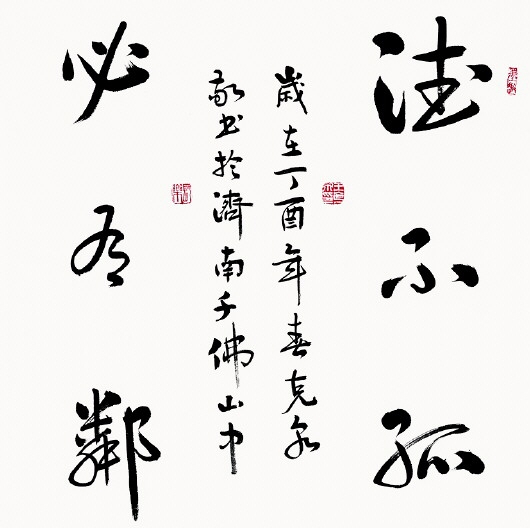 德不孤
歲在丁酉年春克泉
敬书於濟南千佛山中
必有鄰